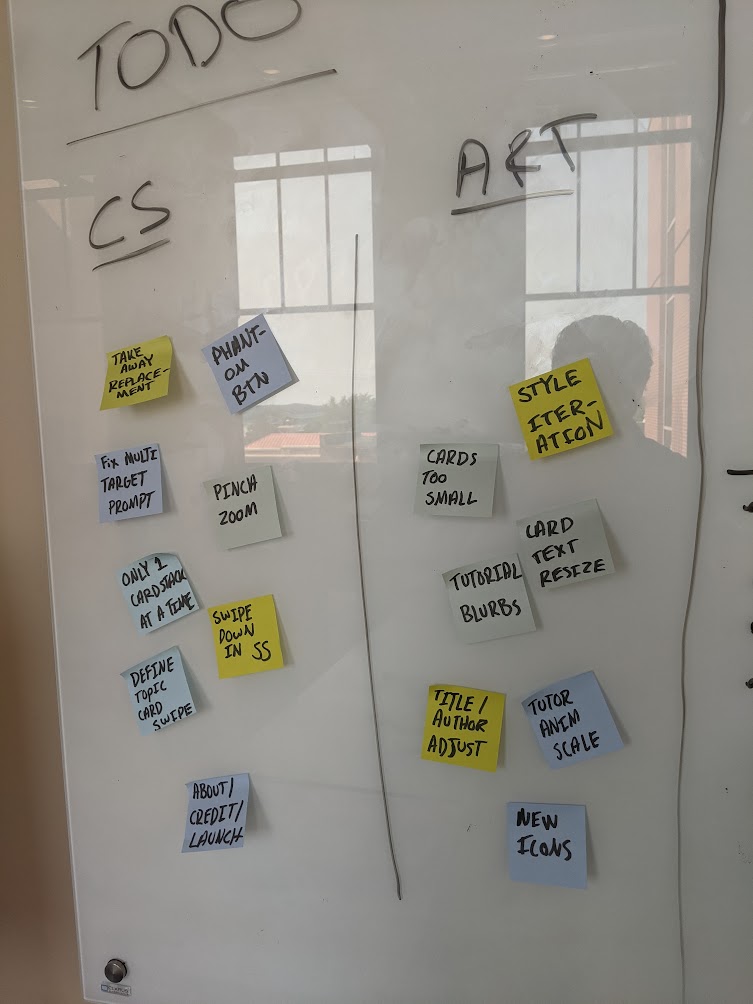 TODO
CS
TAKE
AWAY
REPLACE-
MENT
PHANT-
OM
BTN
FIX MULTI
TARGET
PROMPT
PINCH
ZOOM
ONLY 1
CARDSTACK
AT A TIME
SWIPE
DOWN
IN SS
DEFINE
TOPIC
CARD
SWIPE
ABOUT/
CREDIT/
LAUNCH
ART
STYLE
ITER-
ATION
CARDS
TOO
SMALL
CARD
TEXT
RESIZE
TUTORIAL
BLURBS
TITLE/
AUTHOR
ADJUST
TUTOR
ANIM
SCALE
NEW
ICONS